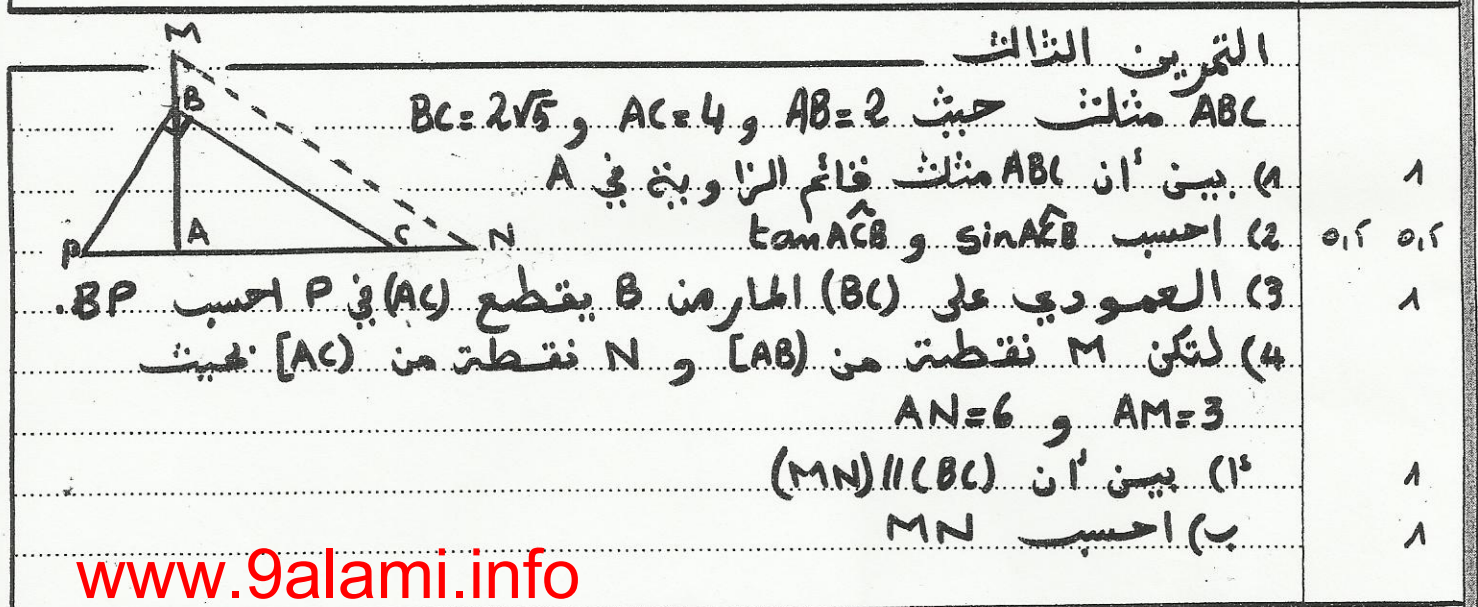 التمرين الثالث
ABC مثلث حيث AB=2 و AC=4 و BC=2√5
1) بين أن ABC مثلث قائم الزاوية في A 1
2) احسب sinAĈB و tanAĈB 0,5 0,5
3) العمودي على (BC) المار من B يقطع (AC) في P احسب BP. 1
4) لتكن M نقطة من [AB) و N نقطة من [AC) بحيث
AM=3 و AN=6
أ) بين أن (MN)//(BC) 1
ب) احسب MN 1
M
B
P
A
C
N
www.9alami.info